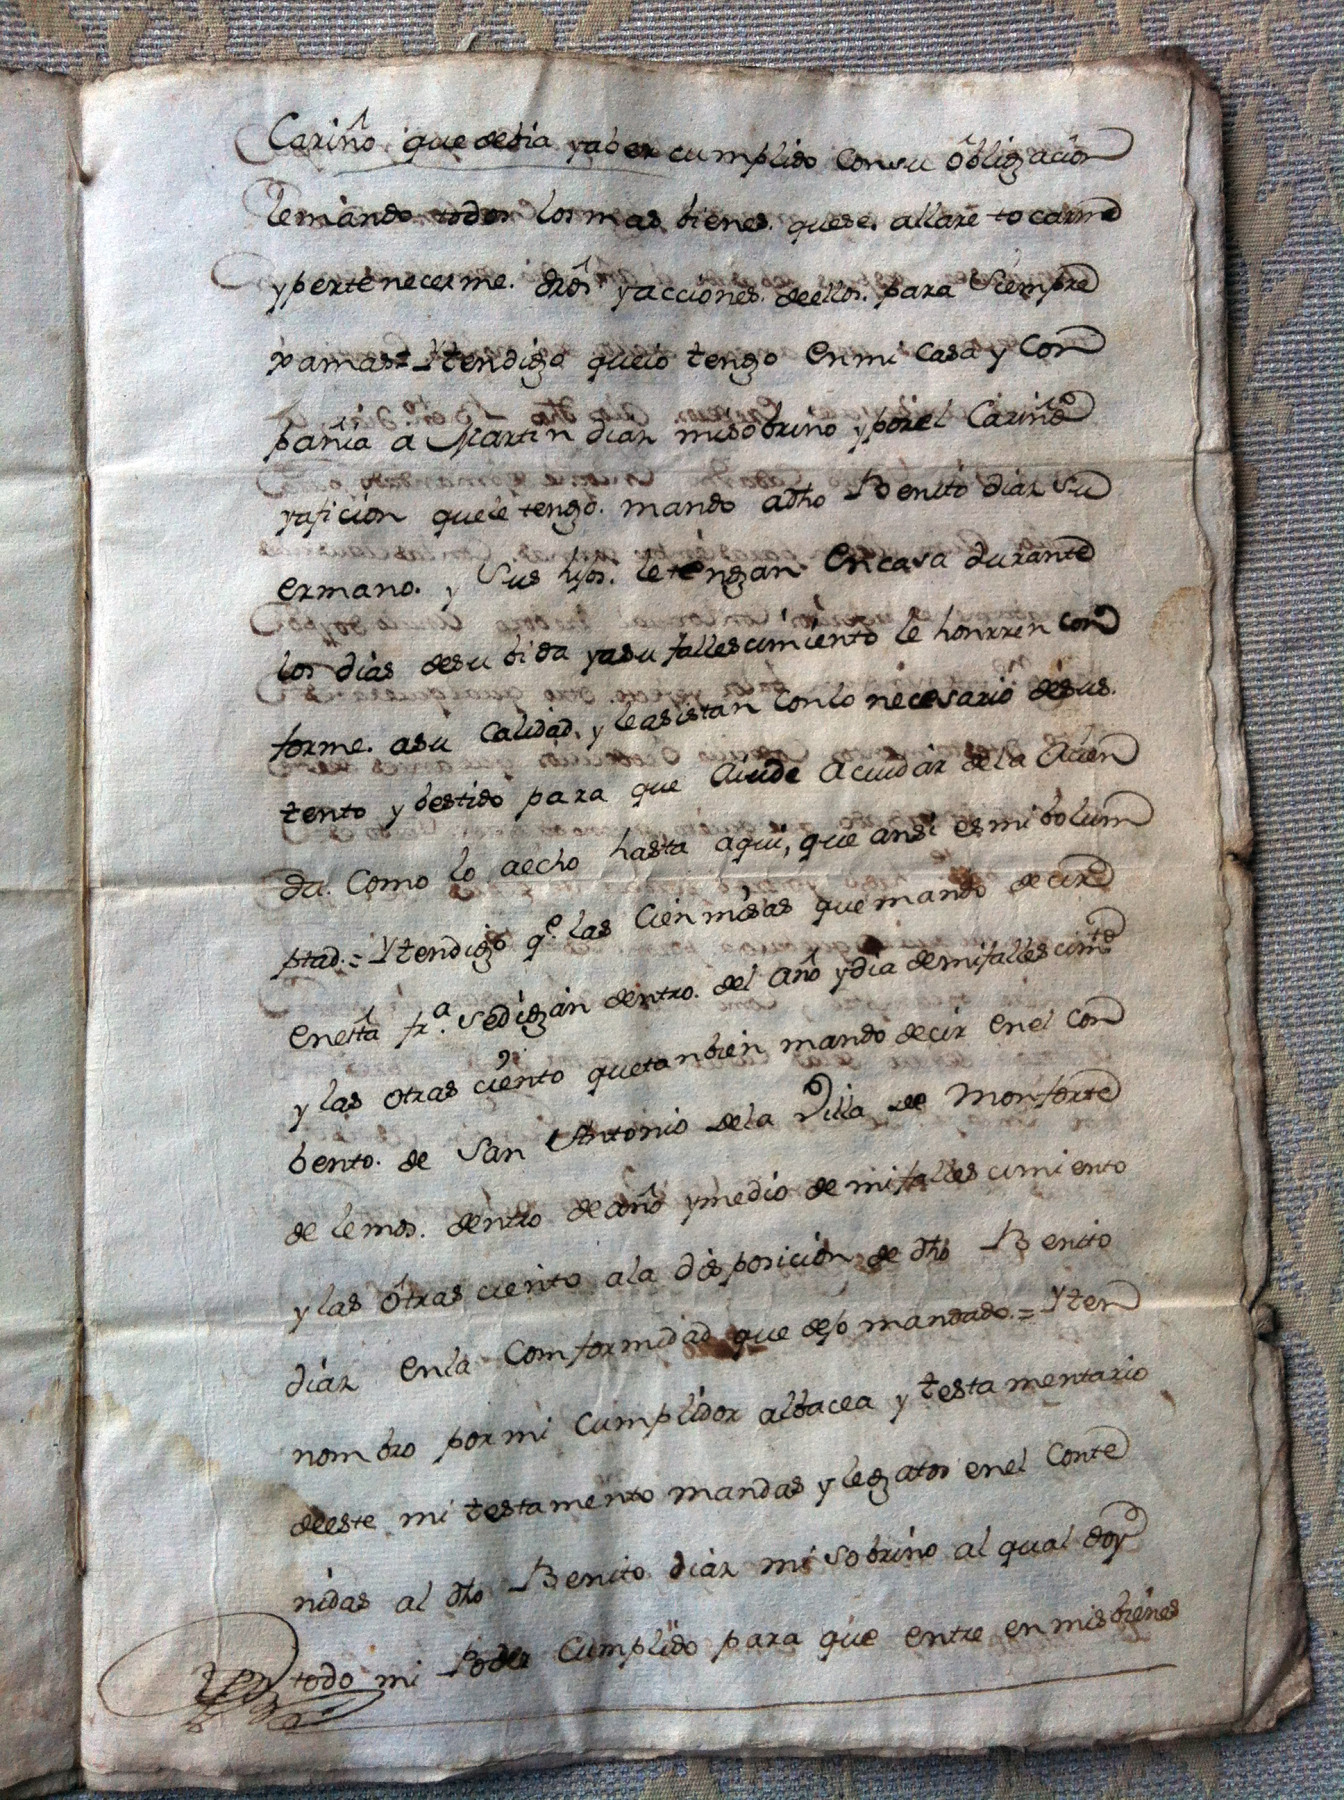 Cariño que debia yaber cumplido con su obligación
le mando todos los mas bienes que se allare tocarme
y pertenecerme. dros y acciones de ellos. para siempre
xamas = Yten digo que io tengo en mi casa y con
pañia a Martin diaz mi sobrino y por el Cariño
y aficion que le tengo. mando a dho Benito diaz su
ermano. y sus hijos. le tengan en casa durante
los dias de su bida y a su fallescimiento le honrren con
forme. a su calidad, y le asistan con lo necesario de sus
tento y bestido para que aiude a cuidar de la acien
da. Como lo a echo hasta aqui, que ansi es mi bolum
ptad. = Yten digo q.e las cien misas que mando decir
en esta fr.a se digan dentro. del año y dia de mi fallescim.to
y las otras ciento que tanbien mando decir en el con
bento. de San Antonio de la Villa de Monforte
de lemos. dentro de año y medio de mi fallescimiento
y las otras ciento a la disposición de dho Benito
diaz en la Comformidad que dejo mandado. = Yten
nombro por mi Cumplidor albacea y testamentario
de este mi testamento mandas y legatos en el Conte
nidas al dho Benito diaz mi sobrino al qual doy
todo mi Poder Cumplido para que entre en mis bienes